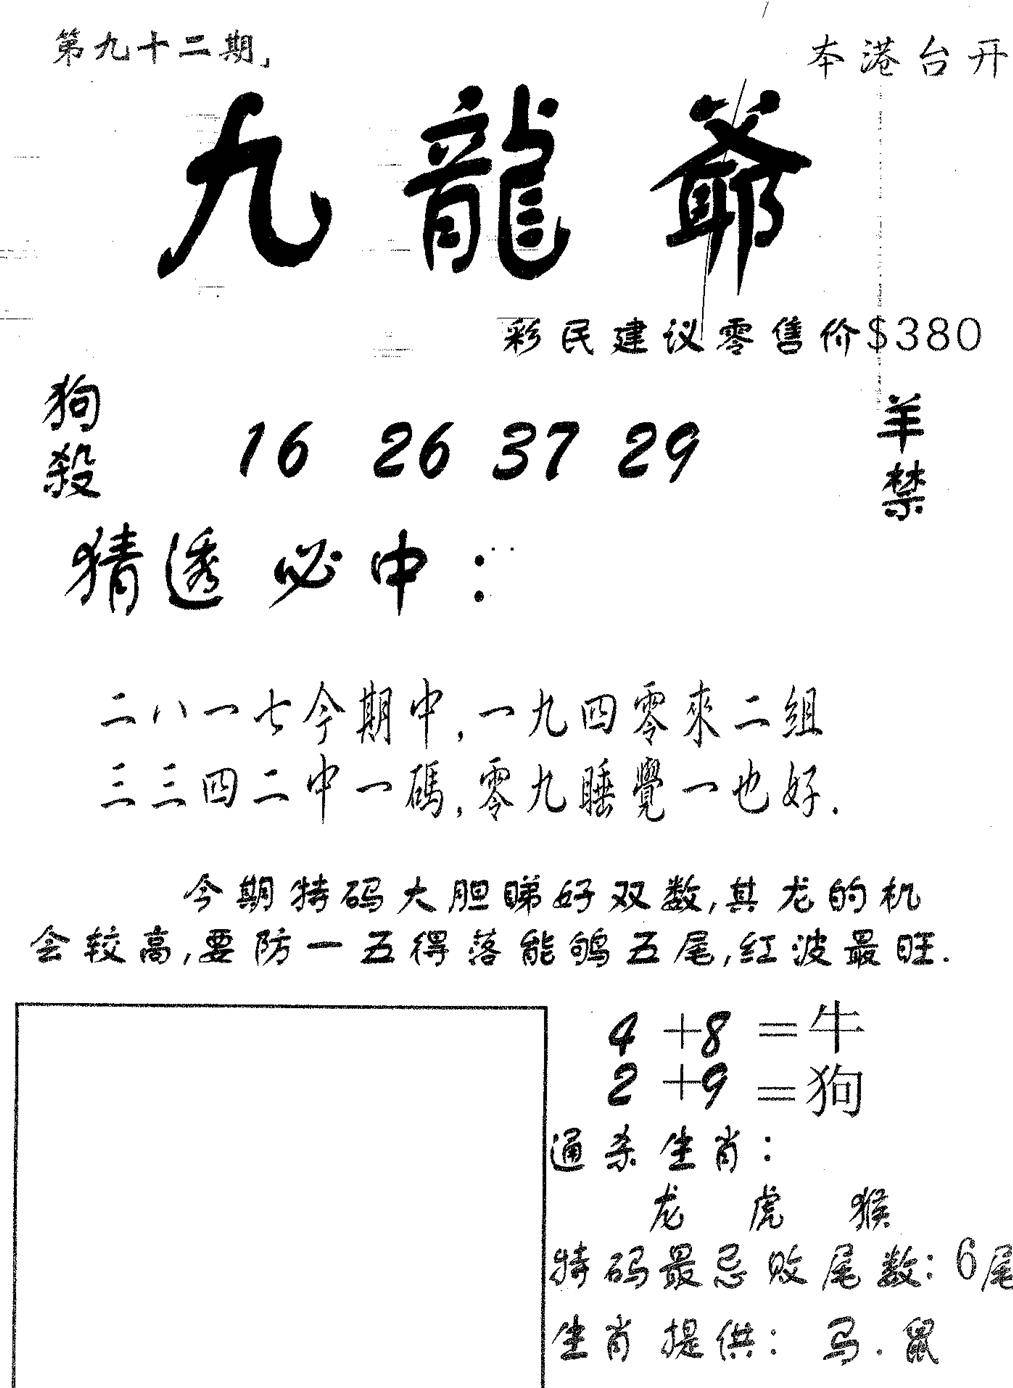 第九十二期,
本港台开
九龍爺
彩民建议零售价$380
狗殺
16 26 37 29
羊禁
猜透必中:
二八一七今期中,一九四零來二組
三三四二中一碼,零九睡覺一也好.
今期特码大胆睇好双数,其龙的机
会较高,要防一五得落能鸲五尾,红波最旺.
4+8=牛
2+9=狗
通杀生肖:
龙 虎 猴
特码最忌败尾数:6尾
生肖提供:马.鼠